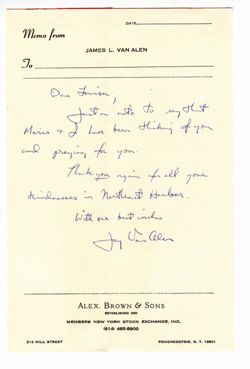 DATE
Memo from
JAMES L. VAN ALEN
To
Dear Louisa,
Just a note to say that
& I have been thinking of you
and praying for you.
Thank you again for all your
kindnesses in Northeast Harbor.
With our best wishes
Jay Van Alen
ALEX. BROWN & SONS
ESTABLISHED 1800
MEMBERS NEW YORK STOCK EXCHANGE, INC.
(914) 485-6900
POUGHKEEPSIE, N. Y. 12601